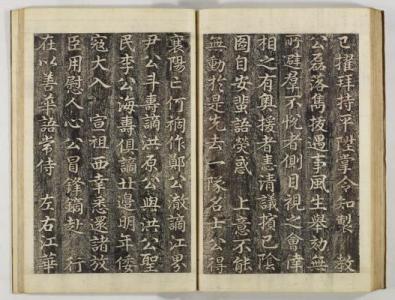 已擢拜持平陞掌令知製 教
公磊落雋拔遇事風生舉劾無
所避羣不悅者側目視之會倖
相之有奧援者主清議擯已陰
囿自安蜚語熒惑 上意不能
無動於是先去一隊名士公得
襄陽亡何禍作鄭公澈謫江界
尹公斗壽謫洪原公與洪公聖
民李公海壽俱謫北邊明年倭
寇大入 宣祖西幸悉還諸放
臣用慰人心公冒鋒鏑赴 行
在以善華語常侍 左右江華